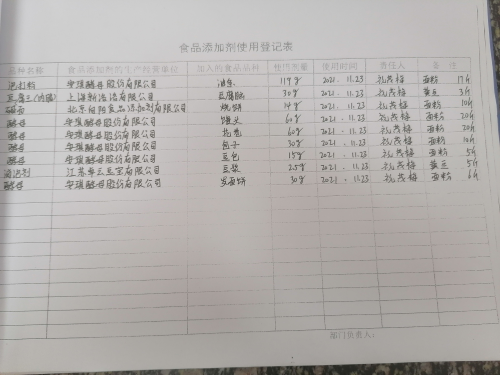 食品添加剂使用登记表
品种名称 食品添加剂的生产经营单位 加入的食品品种 使用剂量 使用时间 责任人 备注
泡打粉 安琪酵母股份有限公司 油条 119g 2021.11.23 面粉 17斤
上海 有限公司 豆腐脑 30g 2021.11.23 黄豆 3斤
碱面 北京 食品添加剂有限公司 烧饼 14g 2021.11.23 面粉 10斤
酵母 安琪酵母股份有限公司 馒头 60g 2021.11.23 面粉 20斤
酵母 安琪酵母股份有限公司 花卷 60g 2021.11.23 面粉 20斤
酵母 安琪酵母股份有限公司 包子 30g 2021.11.23 面粉 10斤
酵母 安琪酵母股份有限公司 豆包 15g 2021.11.23 面粉 5斤
消泡剂 江苏 有限公司 豆浆 25g 2021.11.23 黄豆 5斤
酵母 安琪酵母股份有限公司 发面饼 30g 2021.11.23 面粉 6斤
部门负责人：